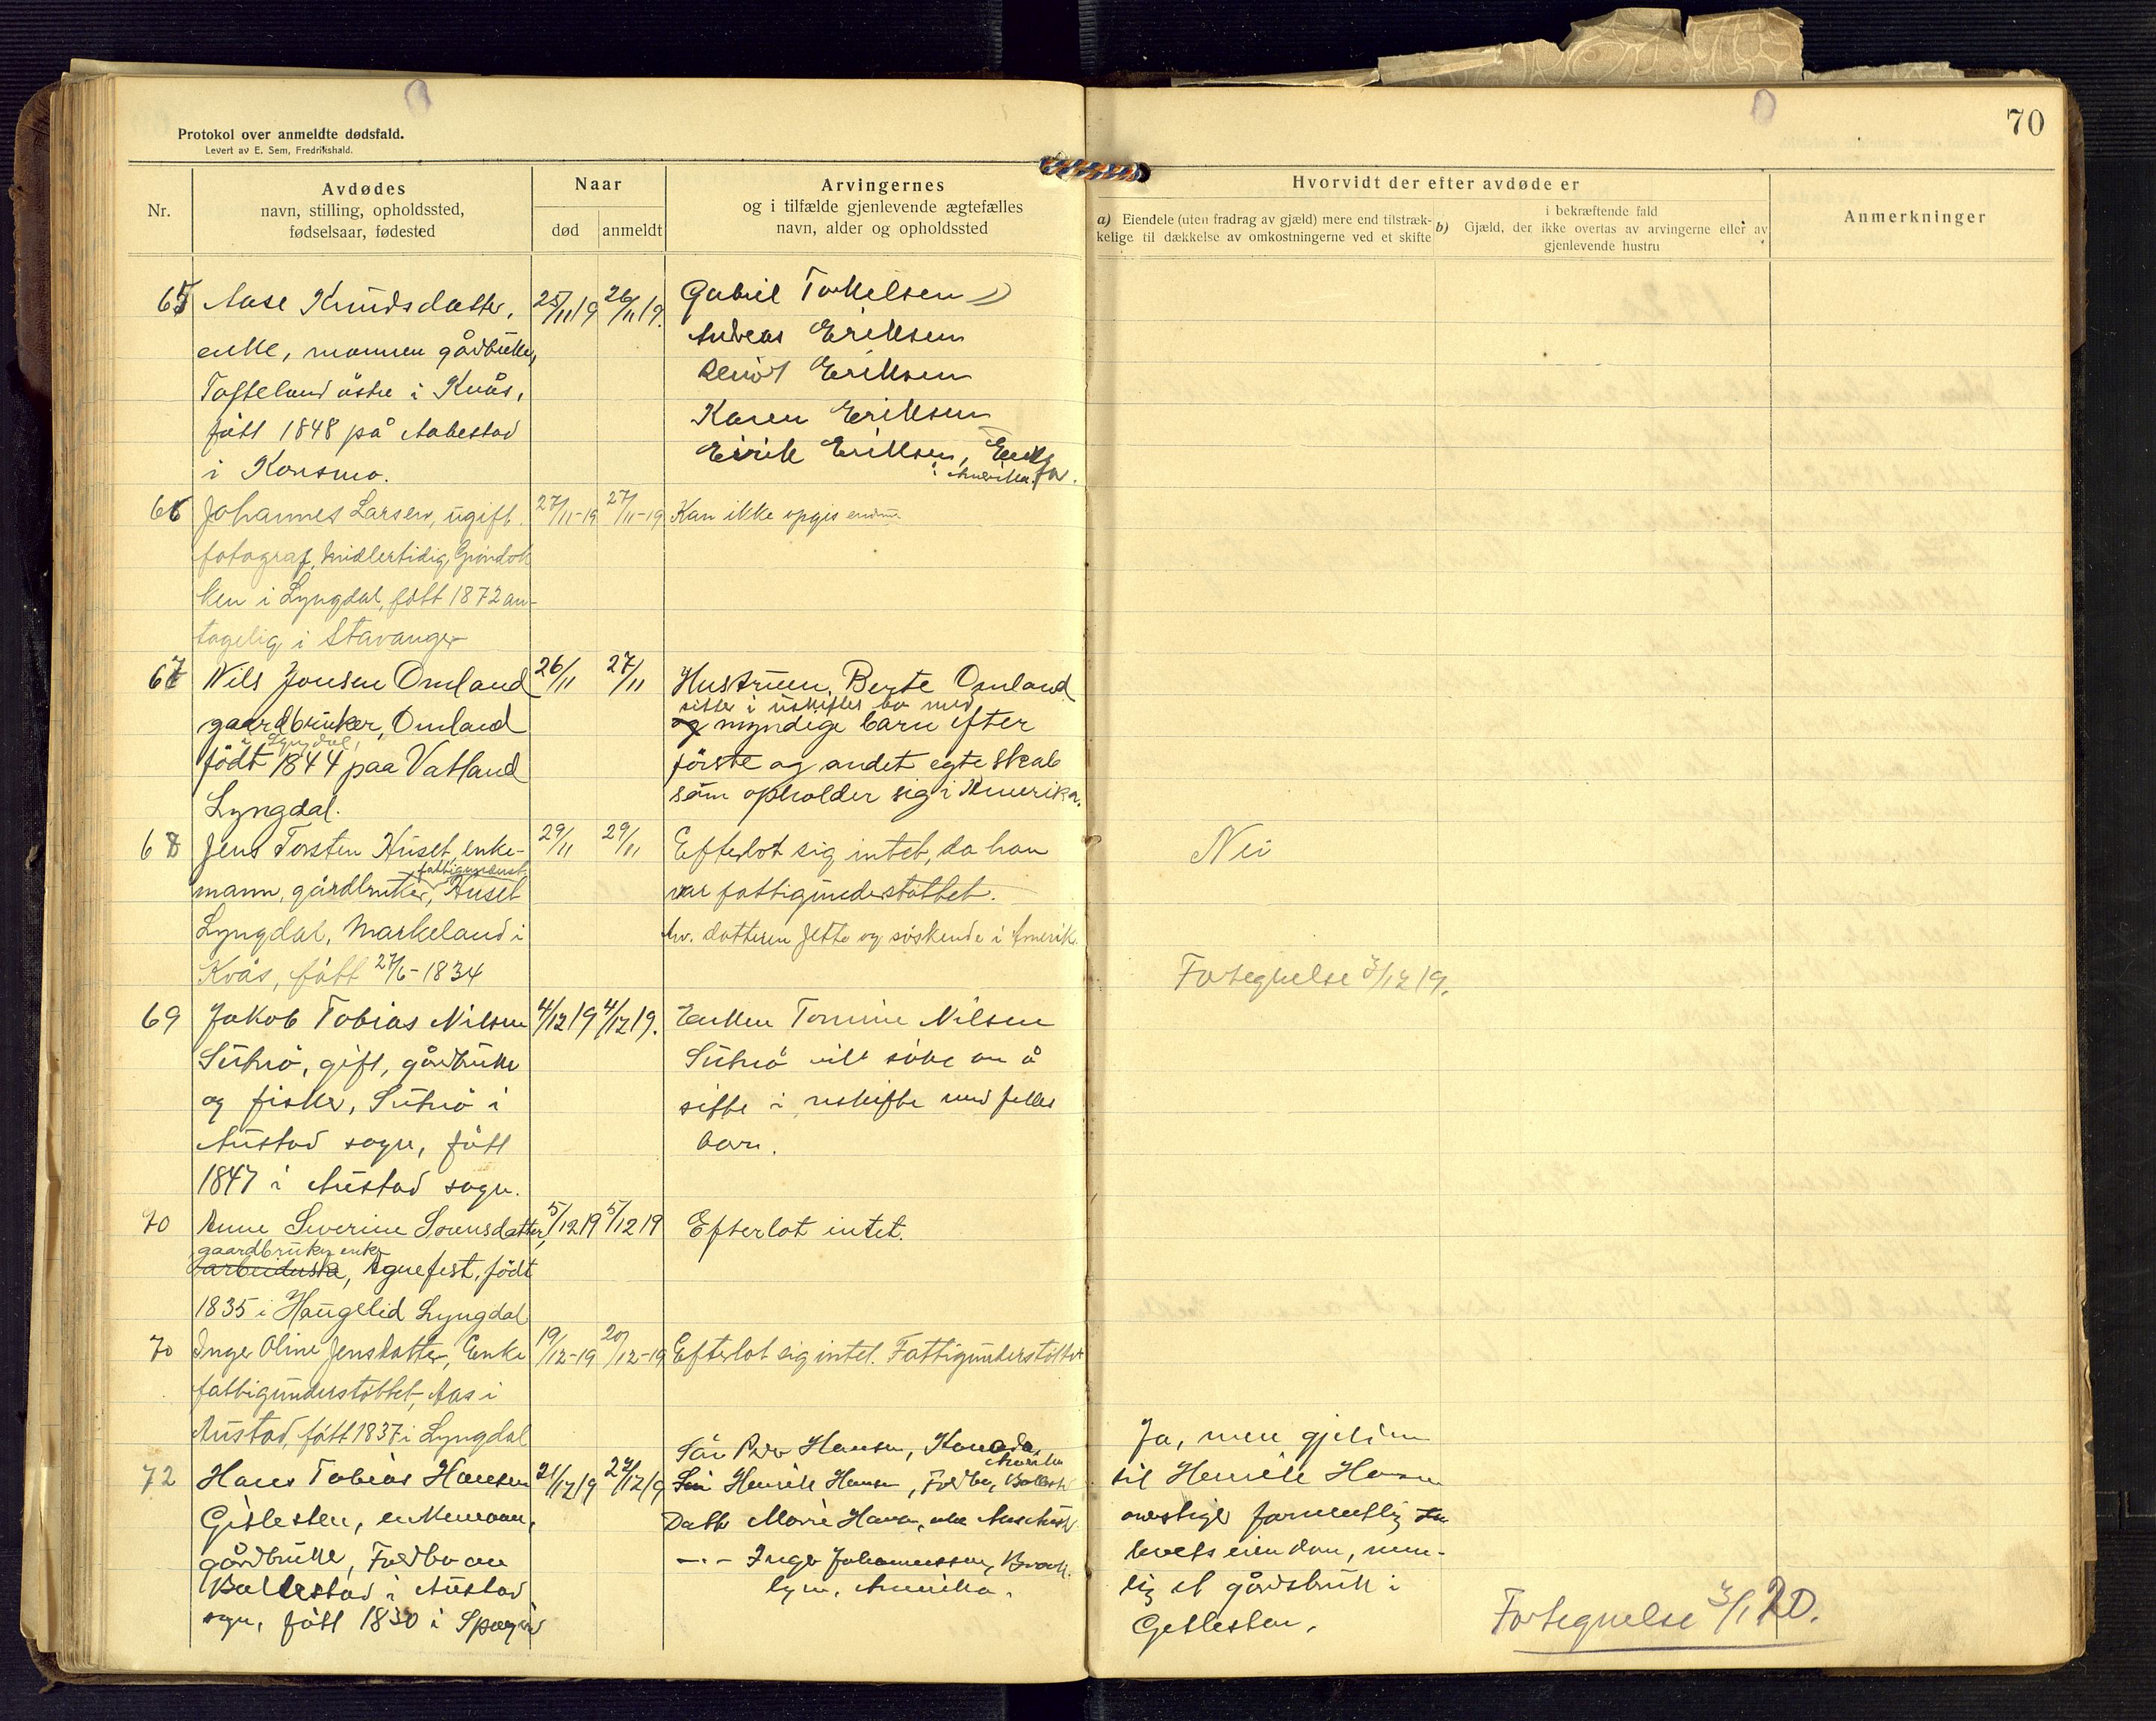 70
Protokol over anmeldte dødsfald.
Levert av E. Sem, Fredrikshald.
Nr.
Avdødes
navn, stilling, opholdssted,
fødselsaar, fødested
Naar
død
anmeldt
Arvingernes
og i tilfælde gjenlevende ægtefælles
navn, alder og opholdssted
Hvorvidt der efter avdøde er
a) Eiendele (uten fradrag av gjæld) mere end tilstræk-
kelige til dækkelse av omkostningerne ved et skifte
i bekræftende fald
b) Gjæld, der ikke overtas av arvingerne eller av
gjenlevende hustru
Anmerkninger
65
Aase Knudsdatter,
enke, mannen gårdbruker,
Tofteland östre i Kvås,
fött 1848 på Aabestad
i Konsmo.
25/11 19
26/11 19.
Gabriel Torkelsen
Andreas Eriksen
Eriksen
Karen Eriksen
Eirik Eriksen,
i Amerika.
66
Johannes Larsen, ugift
fotograf, midlertidig, Grindok
ken i Lyngdal, fött 1872 an-
tagelig i Stavanger
27/11-19
27/11-19
Kan ikke opgis endnu
67
Nils Jonsen Omland
gaardbruker, Omland
i Lyngdal,
födt 1844 paa Vatland
Lyngdal.
26/11
27/11
Hustruen, Berte Omland
sitter i uskiftet bo med
og myndige barn efter
förste og andet egteskab
som opholder sig i Amerika.
68
Jens Torsten Huset, enke-
fattigunderst.
mann, gårdbruker, Huset
Lyngdal, Markeland i
Kvås, fött 27/6-1834
29/11
29/11
Efterlot sig intet, da han
var fattigunderstöttet.
Arv. datteren Jette og söskende i Amerik.
Nei
Fortegnelse 3/12 19.
69
Jakob Tobias Nilsen
Siterö, gift, gårdbruker
og fisker, Siterö i
Austad sogn, fött
1847 i Austad sogn.
4/12 19
4/12 19.
Enken Tomine Nilsen
Siterö vil söke om å
sitte i uskifte med felles
barn.
70
Anne Severine Sörensdatter,
gaardbruker enke
arbeiderske, Agnefest, födt
1835 i Haugelid Lyngdal
5/12 19
5/12 19
Efterlot intet.
70
Inger Oline Jensdatter, Enke
fattigunderstöttet, Aas i
Austad, fött 1837 i Lyngdal
19/12-19
20/12-19
Efterlot sig intet. Fattigunderstöttet
72
Hans Tobias Hansen
Gitlesten, enkemann,
gårdbruker, Fordbo
Ballestad i Austad
sogn, fött 1830 i
21/12 19
22/12 19
Sön Peder Hansen, Kanada,
Amerika
Sön Henrik Hansen, Fordbo, Ballestad
Datter Marie Hansen,
— · — Inger Johannessen, Brook-
lyn, Amerika.
Ja, men gjelden
til Henrik Hansen
overstiger formentlig
boets eiendom, nem-
lig et gårdsbruk i
Gitlesten.
Fortegnelse 3/1 20.